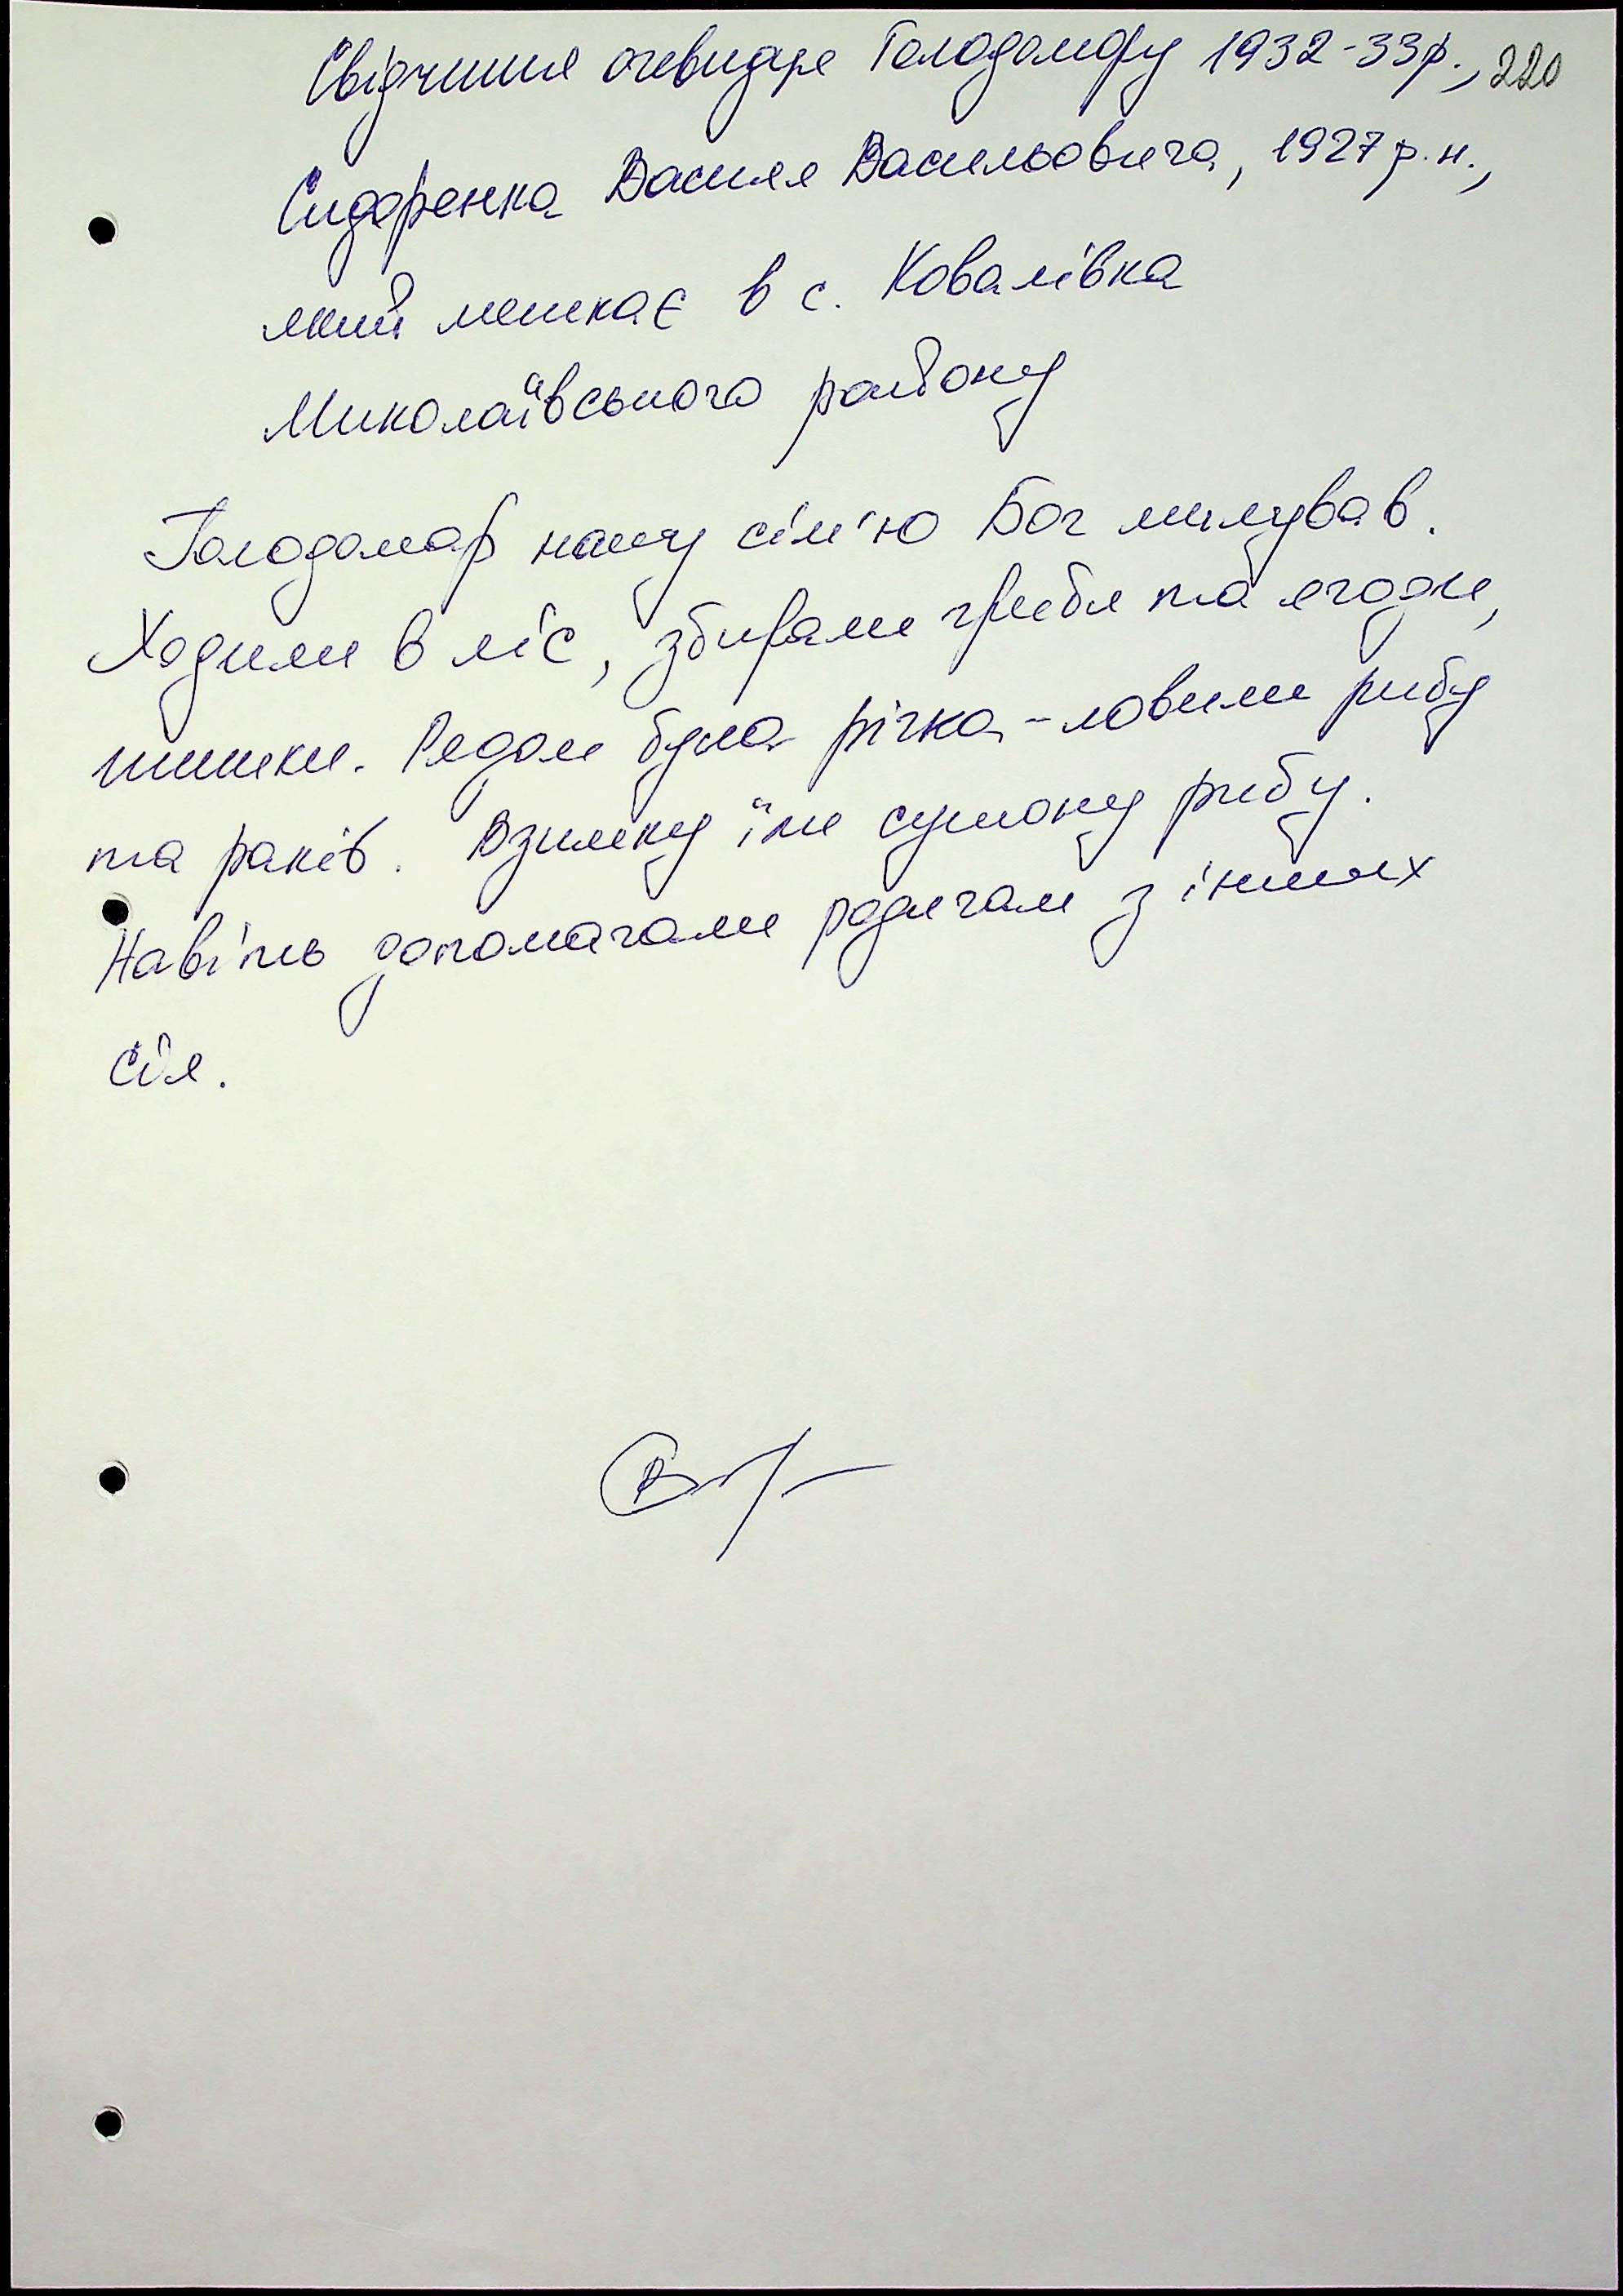 Свідчення очевидця Голодомору 1932-33р., 220
Сидоренка Василя Васильовича, 1927 р.н.,
який мешкає в с. Ковалівка
Миколаївського району
Голодомор нашу сім'ю Бог милував.
Ходили в ліс, збирали гриби та ягоди,
шишки. Рядом була річка - ловили рибу
та раків. Взимку їли сушону рибу.
Навіть допомагали родичам з інших
сіл.